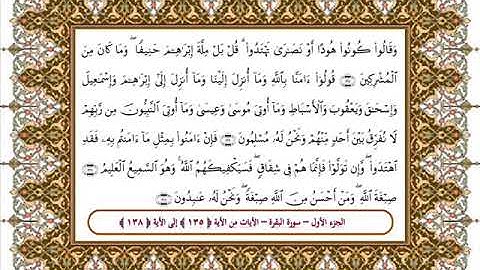 وَقَالُوا۟ كُونُوا۟ هُودًا أَوْ نَصَٰرَىٰ تَهْتَدُوا۟ ۗ قُلْ بَلْ مِلَّةَ إِبْرَٰهِـۧمَ حَنِيفًا ۖ وَمَا كَانَ مِنَ
ٱلْمُشْرِكِينَ ﴿١٣٥﴾ قُولُوٓا۟ ءَامَنَّا بِٱللَّهِ وَمَآ أُنزِلَ إِلَيْنَا وَمَآ أُنزِلَ إِلَىٰٓ إِبْرَٰهِـۧمَ وَإِسْمَٰعِيلَ
وَإِسْحَٰقَ وَيَعْقُوبَ وَٱلْأَسْبَاطِ وَمَآ أُوتِىَ مُوسَىٰ وَعِيسَىٰ وَمَآ أُوتِىَ ٱلنَّبِيُّونَ مِن رَّبِّهِمْ
لَا نُفَرِّقُ بَيْنَ أَحَدٍ مِّنْهُمْ وَنَحْنُ لَهُۥ مُسْلِمُونَ ﴿١٣٦﴾ فَإِنْ ءَامَنُوا۟ بِمِثْلِ مَآ ءَامَنتُم بِهِۦ فَقَدِ
ٱهْتَدَوا۟ ۖ وَّإِن تَوَلَّوْا۟ فَإِنَّمَا هُمْ فِى شِقَاقٍ ۖ فَسَيَكْفِيكَهُمُ ٱللَّهُ ۚ وَهُوَ ٱلسَّمِيعُ ٱلْعَلِيمُ ﴿١٣٧﴾
صِبْغَةَ ٱللَّهِ ۖ وَمَنْ أَحْسَنُ مِنَ ٱللَّهِ صِبْغَةً ۖ وَنَحْنُ لَهُۥ عَٰبِدُونَ ﴿١٣٨﴾
الجزء الأول – سورة البقرة – الآيات من الآية ﴿ ١٣٥ ﴾ إلى الآية ﴿ ١٣٨ ﴾